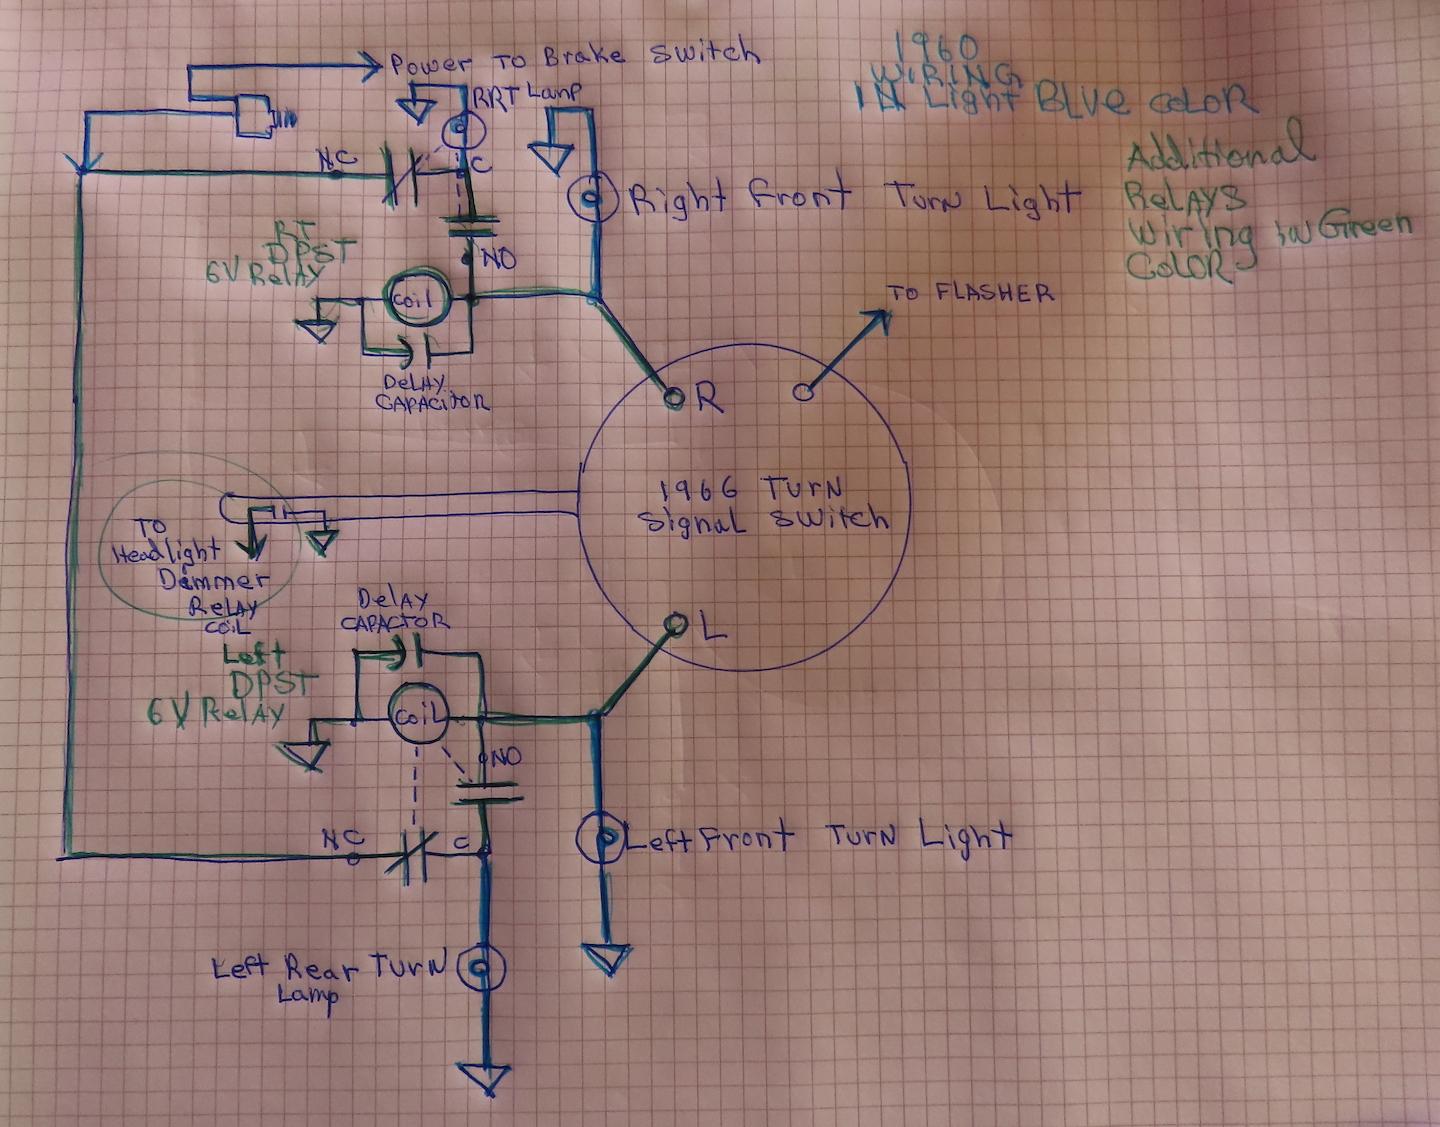 Power To Brake Switch
1960
WIRING
IN Light BLUE COLOR
RRT Lamp
NC
C
Additional
Relays
Wiring in Green
COLOR
Right Front Turn Light
RT
DPST
6V Relay
NO
Coil
TO FLASHER
DeLAY
CAPACitOR
R
1966 TURN
Signal Switch
TO
Headlight
Dimmer
Relay
COIL
DeLAY
CAPACTOR
L
Left
DPST
6V Relay
COIL
NO
NC
C
Left Front Turn Light
Left Rear Turn
Lamp